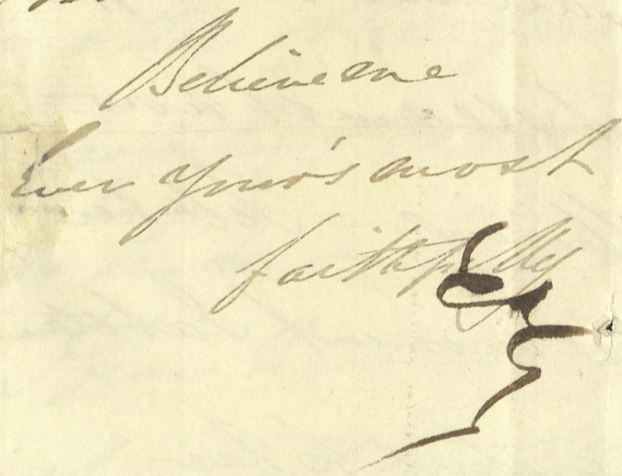 Believe me
Ever your's most
faithfully